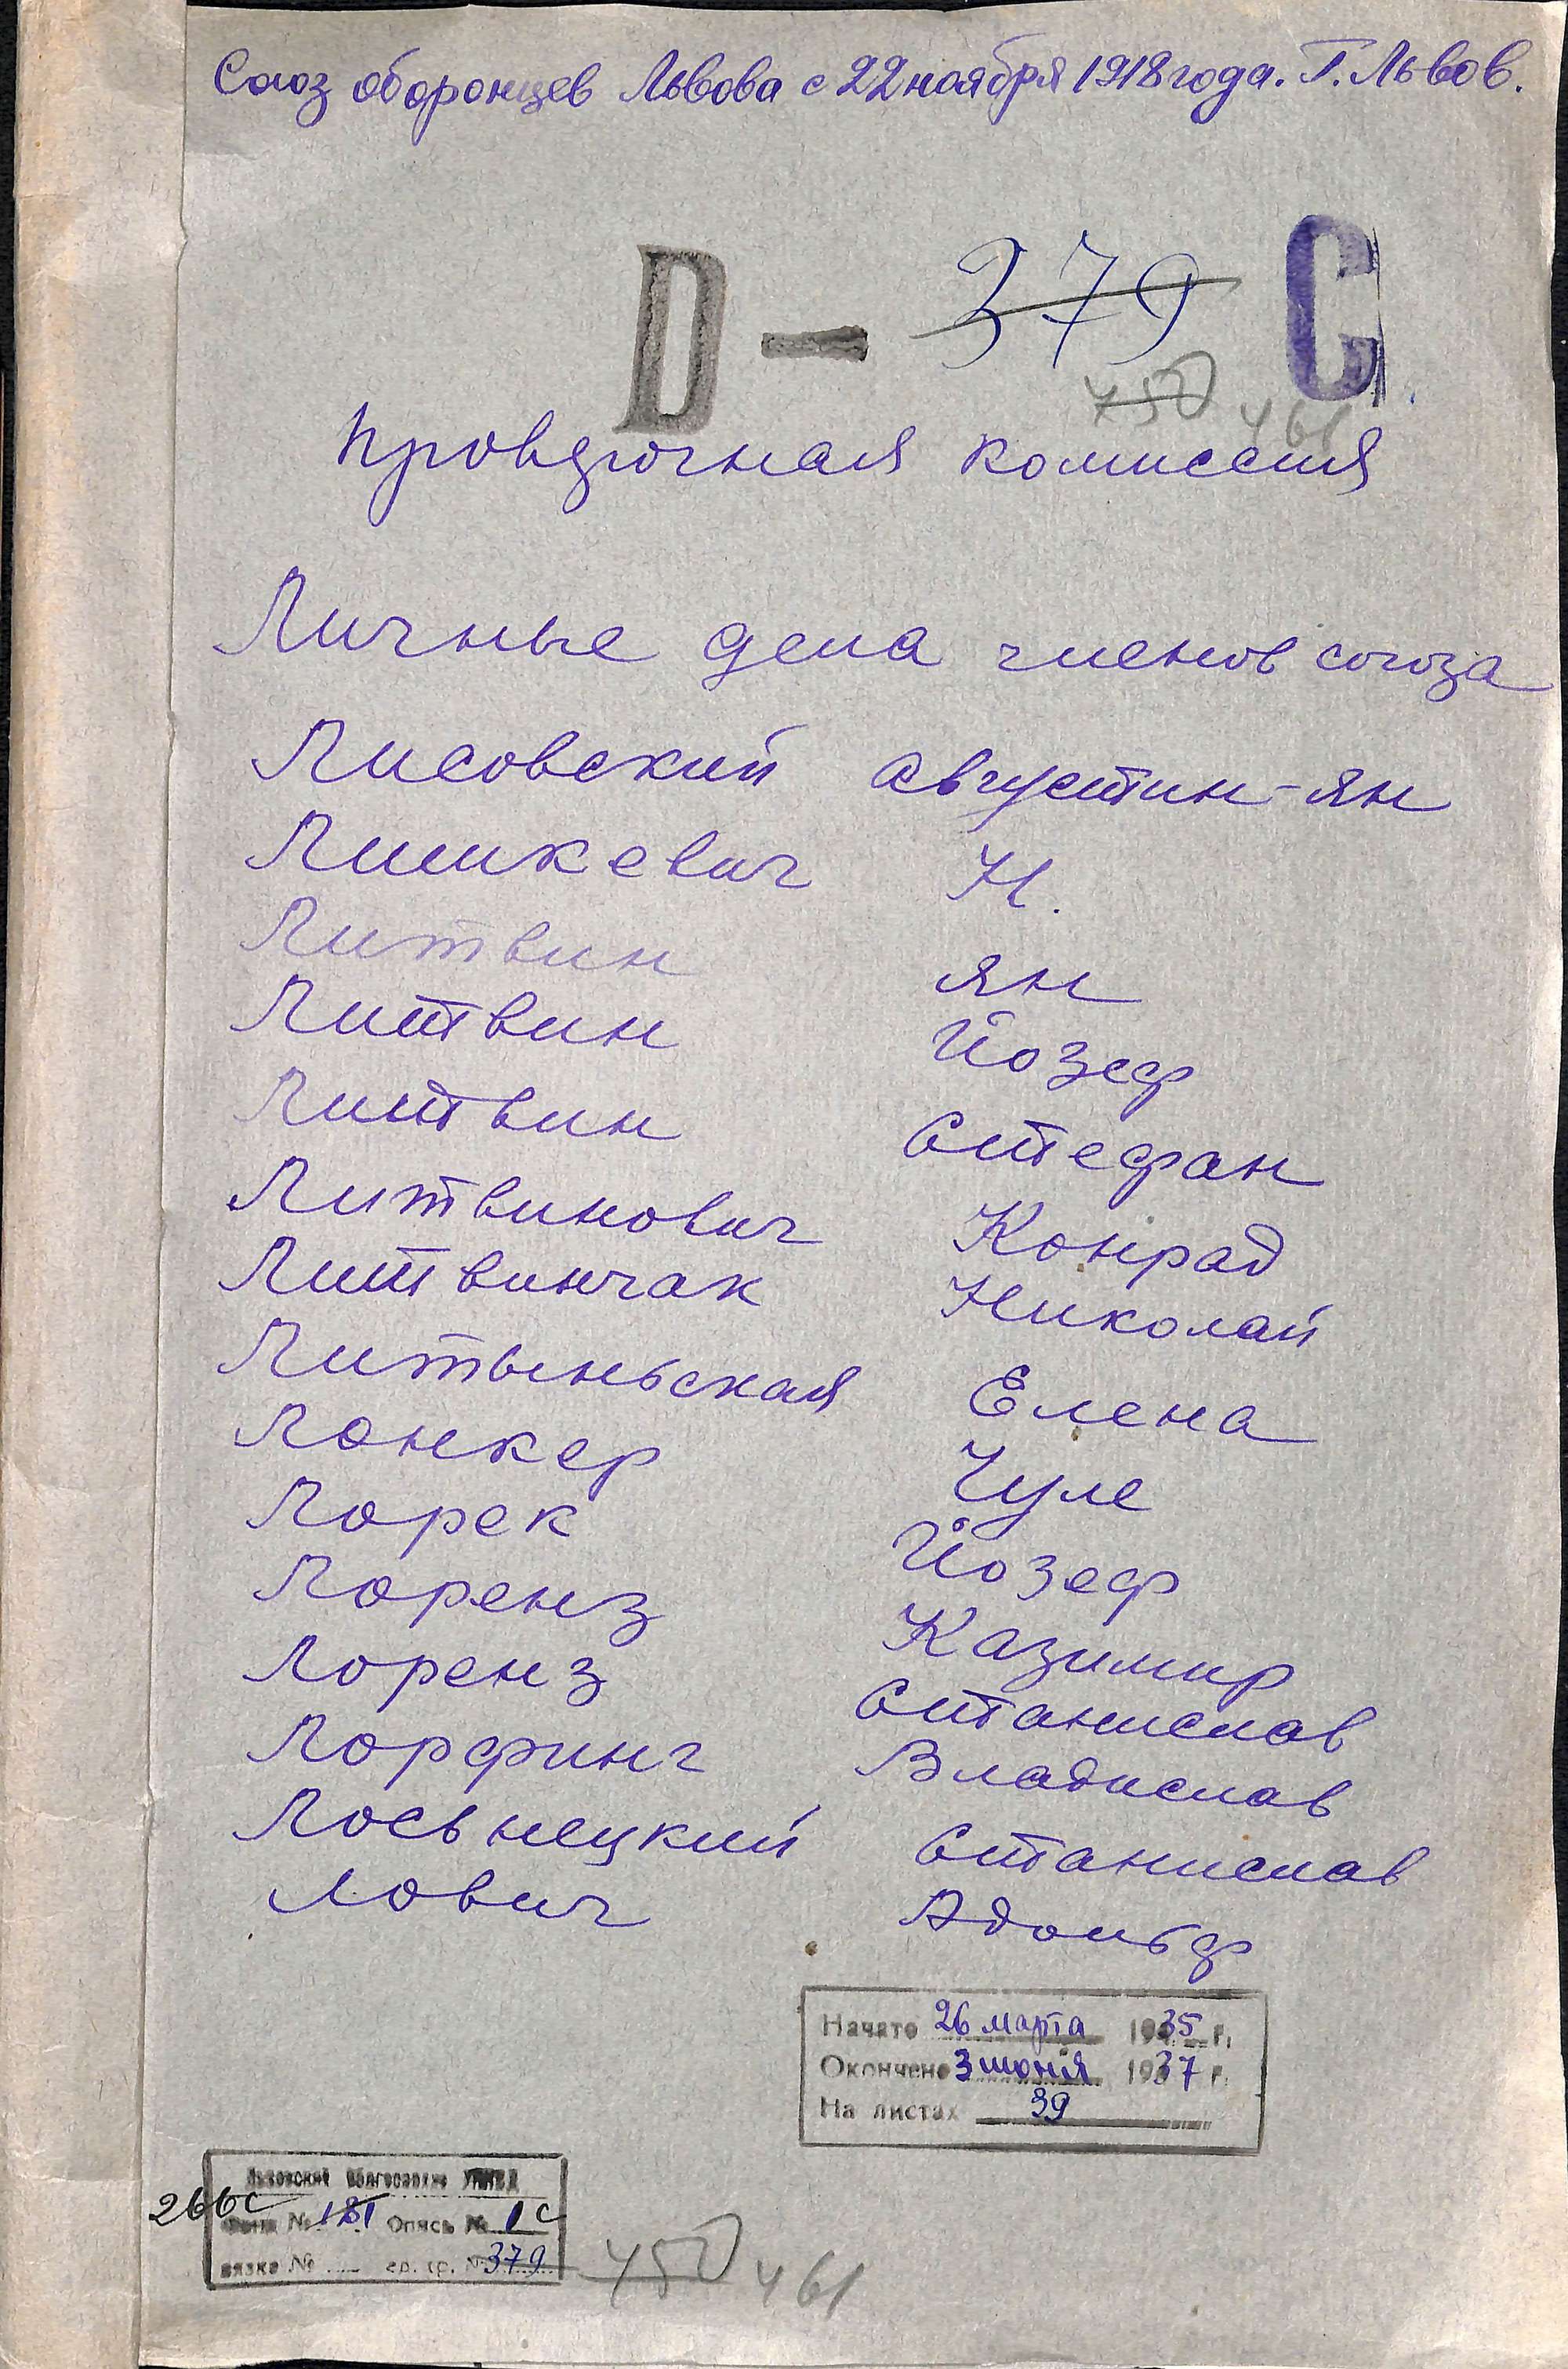 Союз оборонцев Львова с 22 ноября 1918 года. Г. Львов.
D — 379 C
450 461
комиссия
Личные дела членов союза
Лисовский Августин-Ян
Лишкевич Н.
Литвин Ян
Литвин Йозеф
Литвин Стефан
Литвинович Конрад
Литвинчак Николай
Литыньская Елена
Лонкер Чуле
Лорек Йозеф
Лоренз Казимир
Лоренз Станислав
Лорфинг Владислав
Лосьнецкий Станислав
Лович Адольф
Начато 26 марта 1935 г.
Окончено 3 июня 1937 г.
На листах 39
Львовский Облгосархив УНКВД
266с Фонд № 181 Опись № 1с
вязка № ед. хр. № 379
450 461